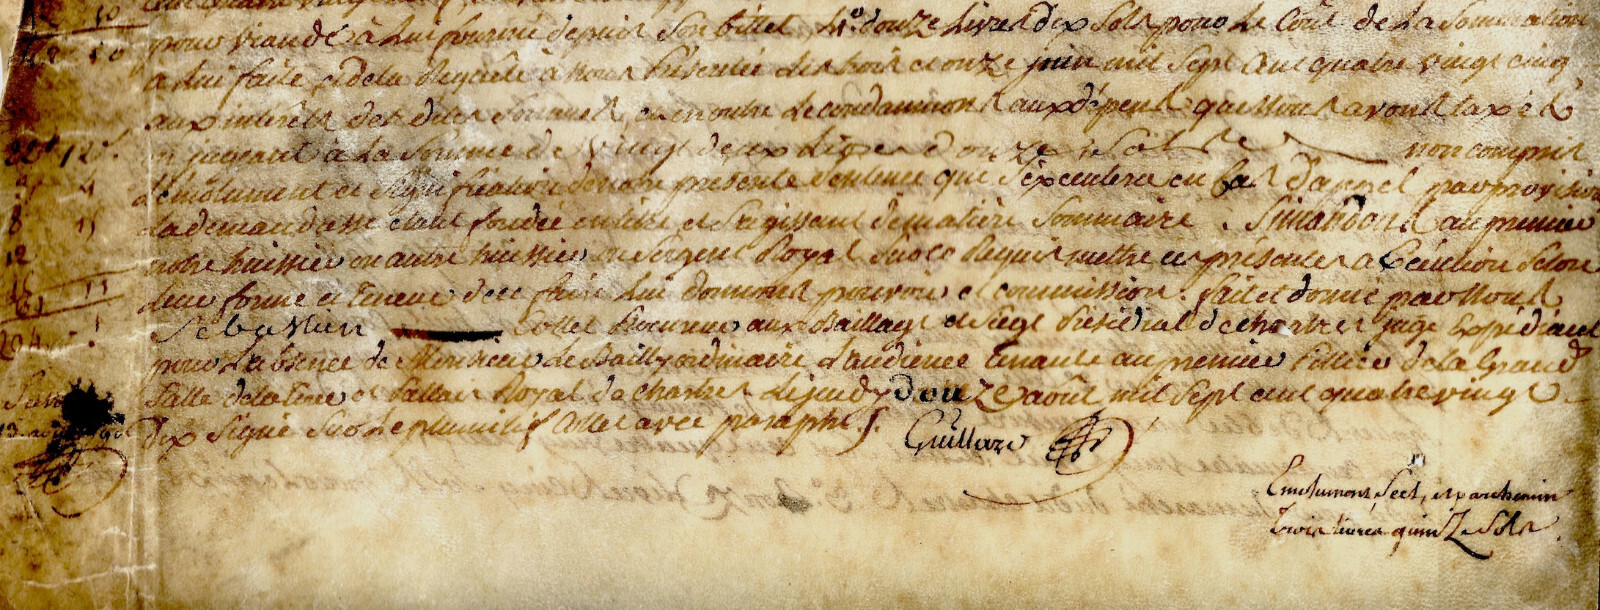 pour viande à lui fournie depuis son billet 4º douze livres dix sols pour le Coût de la Sommation
a lui faite et de la Requête à nous présentée les trois et onze juin mil sept cent quatre vingt cinq
aux intérêts des dites sommes et en outre le condamnons aux dépens que nous avons taxés
en jugeant à la Somme de vingt deux livres douze sols non compris
L'émolument et signification de notre présente sentence que s'exécutera en cas d'appel par provision
La demanderesse étant fondée en titre et s'agissant de matière sommaire. Si mandons au premier
notre huissier ou autre huissier ou sergent Royal sur ce Requis mettre ces présentes a Exécution selon
leur forme et teneur de ce faire lui donnons pouvoir et commission. fait et donné par nous
Sebastien Collet Procureur aux Bailliage et Siège Présidial de chartres juge Expédiant
pour L'absence de Monsieur Le Bailly ordinaire d'audience tenante au premier Pillier de la Grande
Salle de la Tour et Pallais Royal de chartres Le jeudy douze août mil sept cent quatre vingt
dix Signé sur Le plumitif Collet avec paraphe.
Guillard
Emolument, scel, et parchemin
trois livres quinze sols.